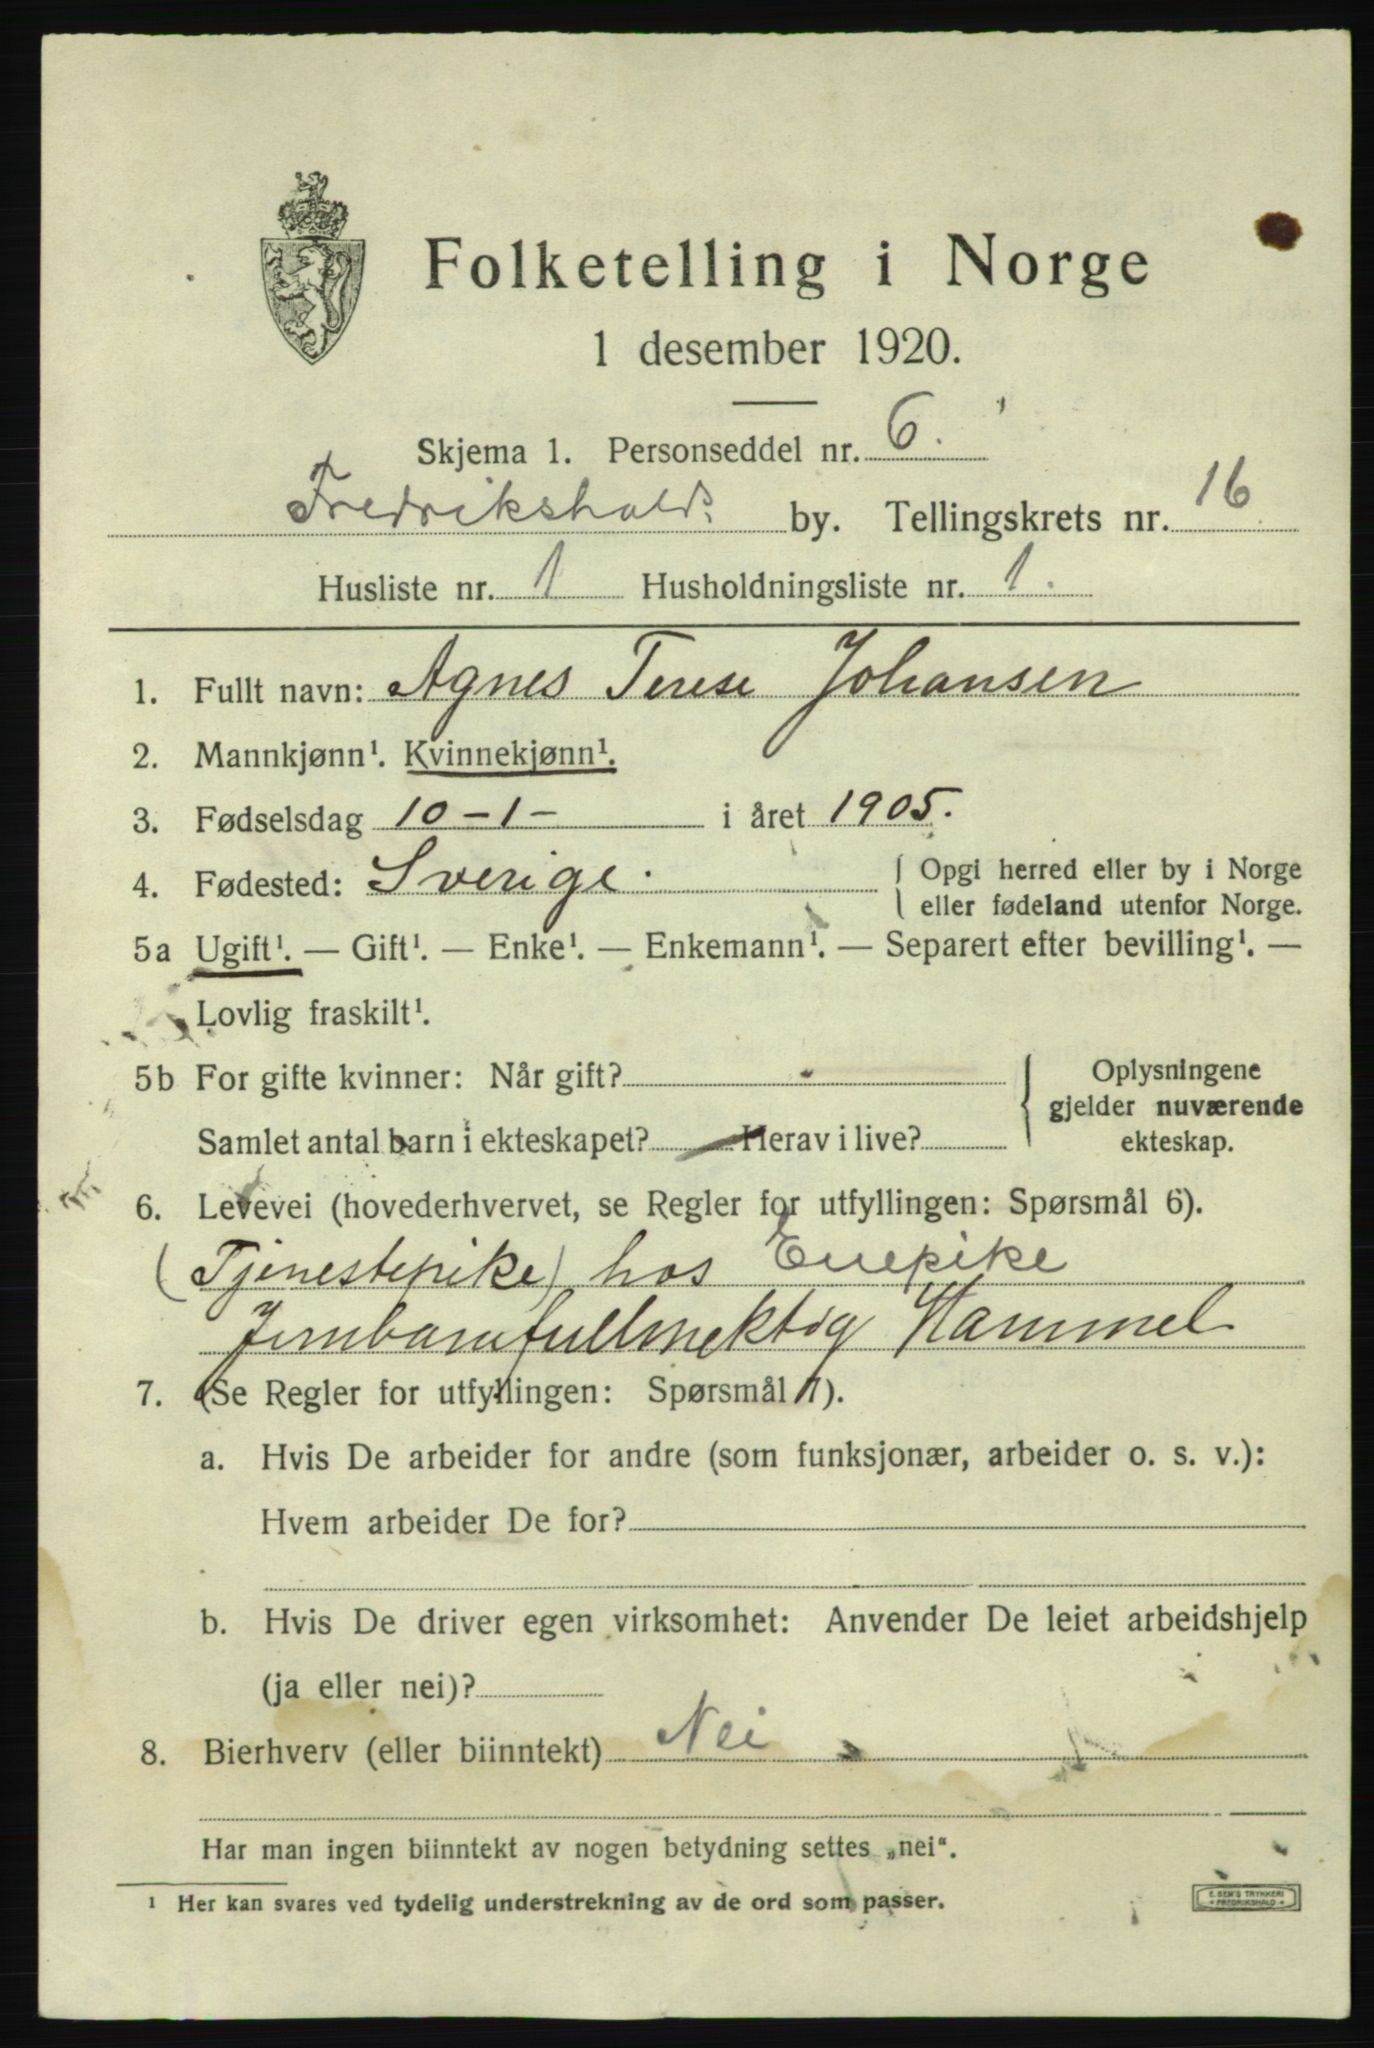 Folketelling i Norge
1 desember 1920.
Skjema 1. Personseddel nr. 6.
Fredrikshalds by. Tellingskrets nr. 16
Husliste nr. 1 Husholdningsliste nr. 1.
1. Fullt navn: Agnes Terese Johansen
2. Mannkjønn¹. Kvinnekjønn¹.
3. Fødselsdag 10-1- i året 1905.
4. Fødested: Sverige. { Opgi herred eller by i Norge
eller fødeland utenfor Norge.
5a Ugift¹. — Gift¹. — Enke¹. — Enkemann¹. — Separert efter bevilling¹. —
Lovlig fraskilt¹.
5b For gifte kvinner: Når gift?
Samlet antal barn i ekteskapet? — Herav i live?
{ Oplysningene
gjelder nuværende
ekteskap.
6. Levevei (hovederhvervet, se Regler for utfyllingen: Spørsmål 6).
(Tjenestepike) hos Enepike
Jernbanefullmektig Hammel
7. (Se Regler for utfyllingen: Spørsmål 7).
a. Hvis De arbeider for andre (som funksjonær, arbeider o. s. v.):
Hvem arbeider De for?
b. Hvis De driver egen virksomhet: Anvender De leiet arbeidshjelp
(ja eller nei)?
8. Bierhverv (eller biinntekt) Nei
Har man ingen biinntekt av nogen betydning settes „nei“.
¹ Her kan svares ved tydelig understrekning av de ord som passer.
E. SEM'S TRYKKERI
• FREDRIKSHALD •